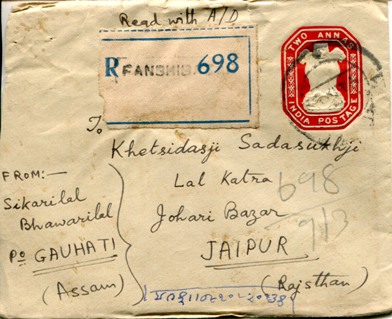 Regd with A/D
TWO ANNAS
INDIA POSTAGE
R 698
To
Khetsidasji Sadasukhji
Lal Katra
Johari Bazar
JAIPUR
(Rajsthan)
698
913
FROM:—
Sikarilal
Bhawarilal
PO GAUHATI
(Assam)